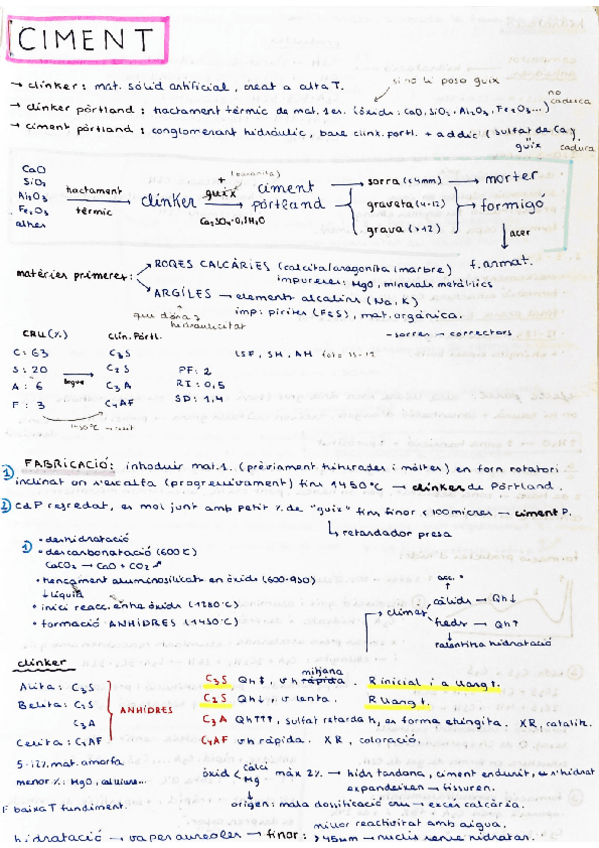 CIMENT
→ clínker: mat. sòlid artificial, creat a alta T.
si no hi poso guix
→ clínker pòrtland: tractament tèrmic de mat. 1es. (òxids: CaO, SiO₂, Al₂O₃, Fe₂O₃...)
no caduca
→ ciment pòrtland: conglomerant hidràulic, base clink. portl. + addic (sulfat de Ca)
guix caduca
CaO
SiO₂
Al₂O₃
Fe₂O₃
altres
tractament tèrmic
clínker
+ guix
ciment pòrtland
sorra (<4mm) → morter
graveta (4-12) → formigó
grava (>12)
acer
f. armat.
matèries primeres:
→ ROQES CALCÀRIES (calcita/aragonita/marbre)
impureses: MgO, minerals metàl·lics
→ ARGILES → elements alcalins (Na, K)
imp: pirites (FeS), mat. orgànica.
qui dóna hidraulicitat
- sorres → correctors
CRU (%) Clín. Pòrtl.
C: 63 C₃S LSF, SM, AM
S: 20 C₂S PF: 2
A: 6 C₃A RI: 0,5
F: 3 C₄AF SD: 1,4
① FABRICACIÓ: introduir mat. 1. (prèviament triturades i mòltes) en forn rotatori
inclinat on s'escalta (progressivament) fins 1450°C → clínker de Pòrtland.
② CdP refredat, es mol junt amb petit % de "guix" fins finor < 100 micres → ciment P.
↳ retardador presa
① • deshidratació
• descarbonatació (600°C)
CaCO₃ → CaO + CO₂↗
• trencament aluminosilicats en òxids (600-950)
↓ líquid
• inici reacc. entre òxids (1280°C)
• formació ANHIDRES (1450°C)
climes
acc.
càlids → Qh↓
freds → Qh↑
ralentitza hidratació
clínker
Alita: C₃S
Belita: C₂S
C₃A
Celita: C₄AF
ANHIDRES
mitjana
C₃S Qh↑, vh ràpida. R inicial i a llarg t.
C₂S Qh↓, v lenta. R llarg t.
C₃A Qh↑↑↑, sulfat retarda h, es forma etringita. XR, catalit.
C₄AF vh ràpida. XR, coloració.
5-12% mat. amorfa
menor %: MgO, cal lliure...
òxid < Calci Mg màx 2% → hidr tardana, ciment endurit, es n'hidrat
expandeixen → fissuren.
origen: mala dosificació cru → excés calcària.
F baixa T fundiment.
millor reactivitat amb aigua.
hidratació → vapers aureoles → finor: >45μm → nuclis sense hidratar.